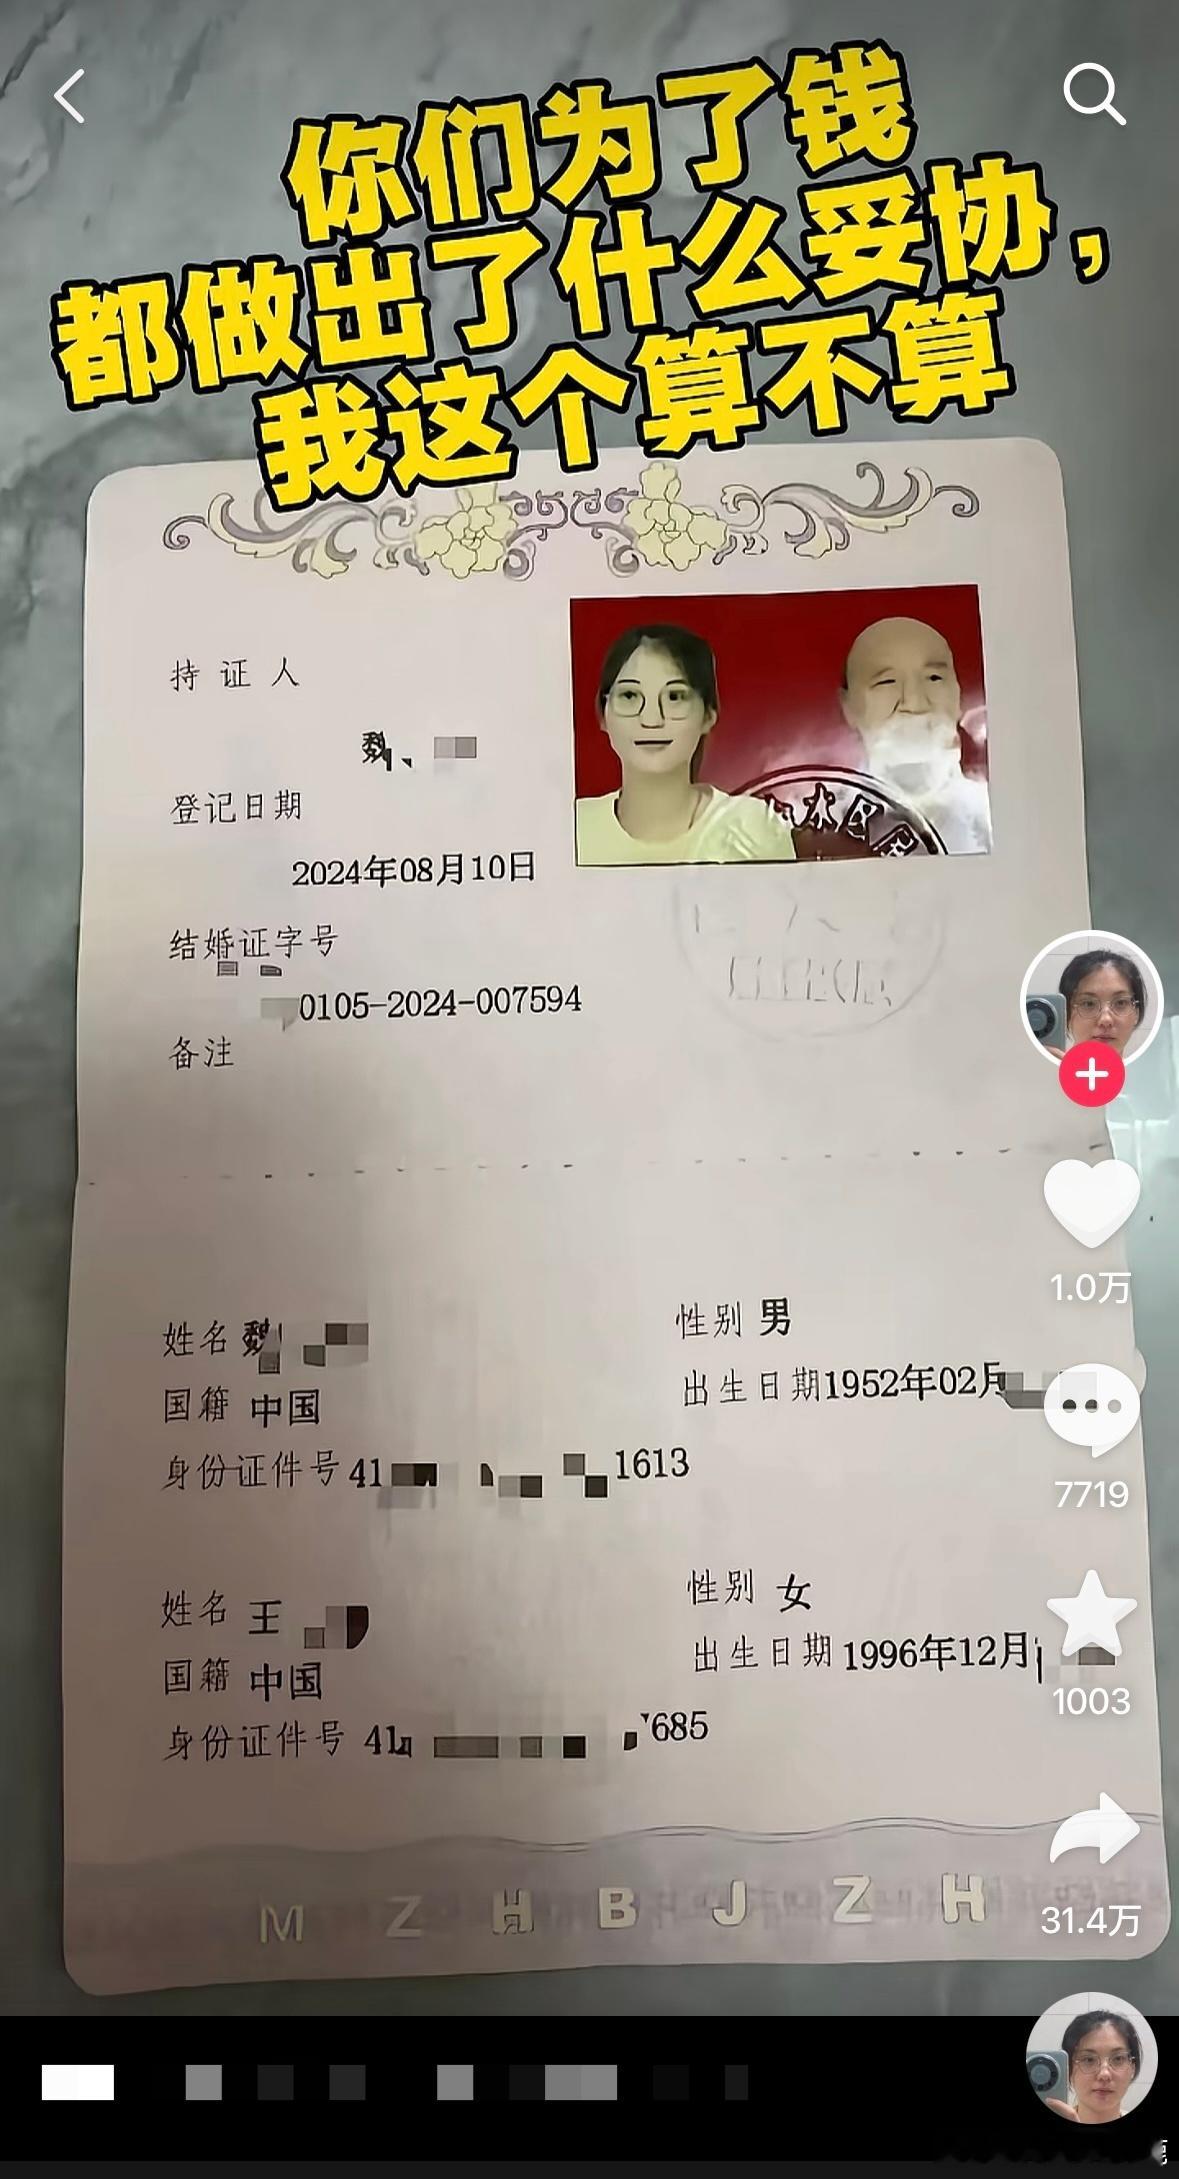 你们为了钱
都做出了什么妥协，
我这个算不算
持证人
魏
登记日期
2024年08月10日
结婚证字号
0105-2024-007594
备注
姓名 魏
性别 男
国籍 中国
出生日期 1952年02月
身份证件号 41 1613
姓名 王
性别 女
国籍 中国
出生日期 1996年12月
身份证件号 41 685
M Z H B J Z H
1.0万
7719
1003
31.4万